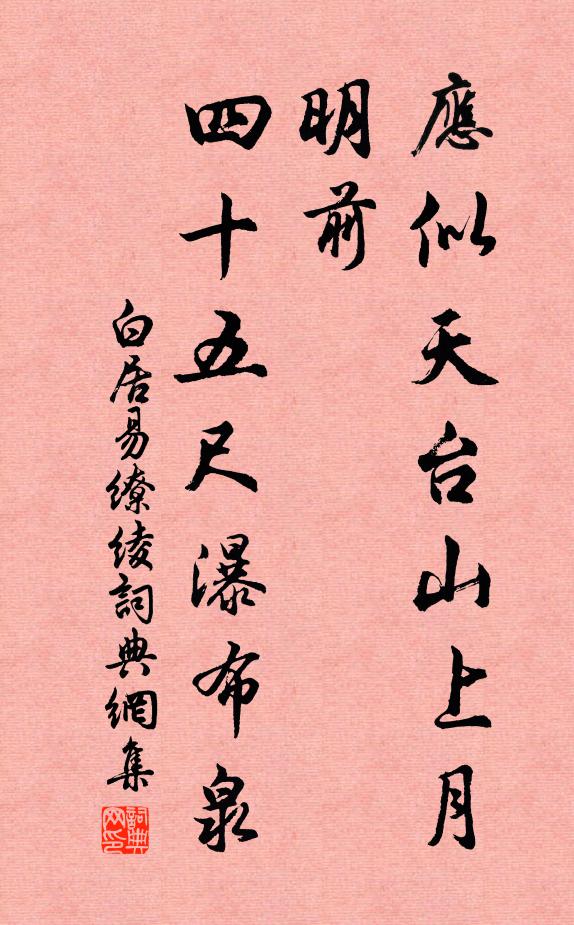 應似天台山上月
明前
四十五尺瀑布泉
白居易繚綾詞典網集
詞典
网印